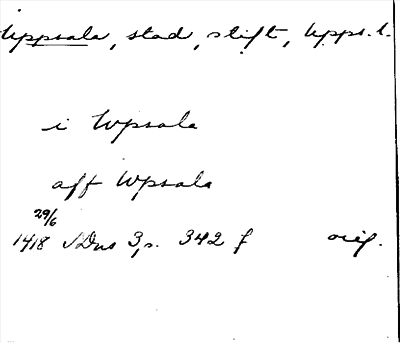 Uppsala, stad, stift, Upps. l.
i Wpsala
aff Wpsala
29/6
1418 SDns 3, s. 342 f orig.